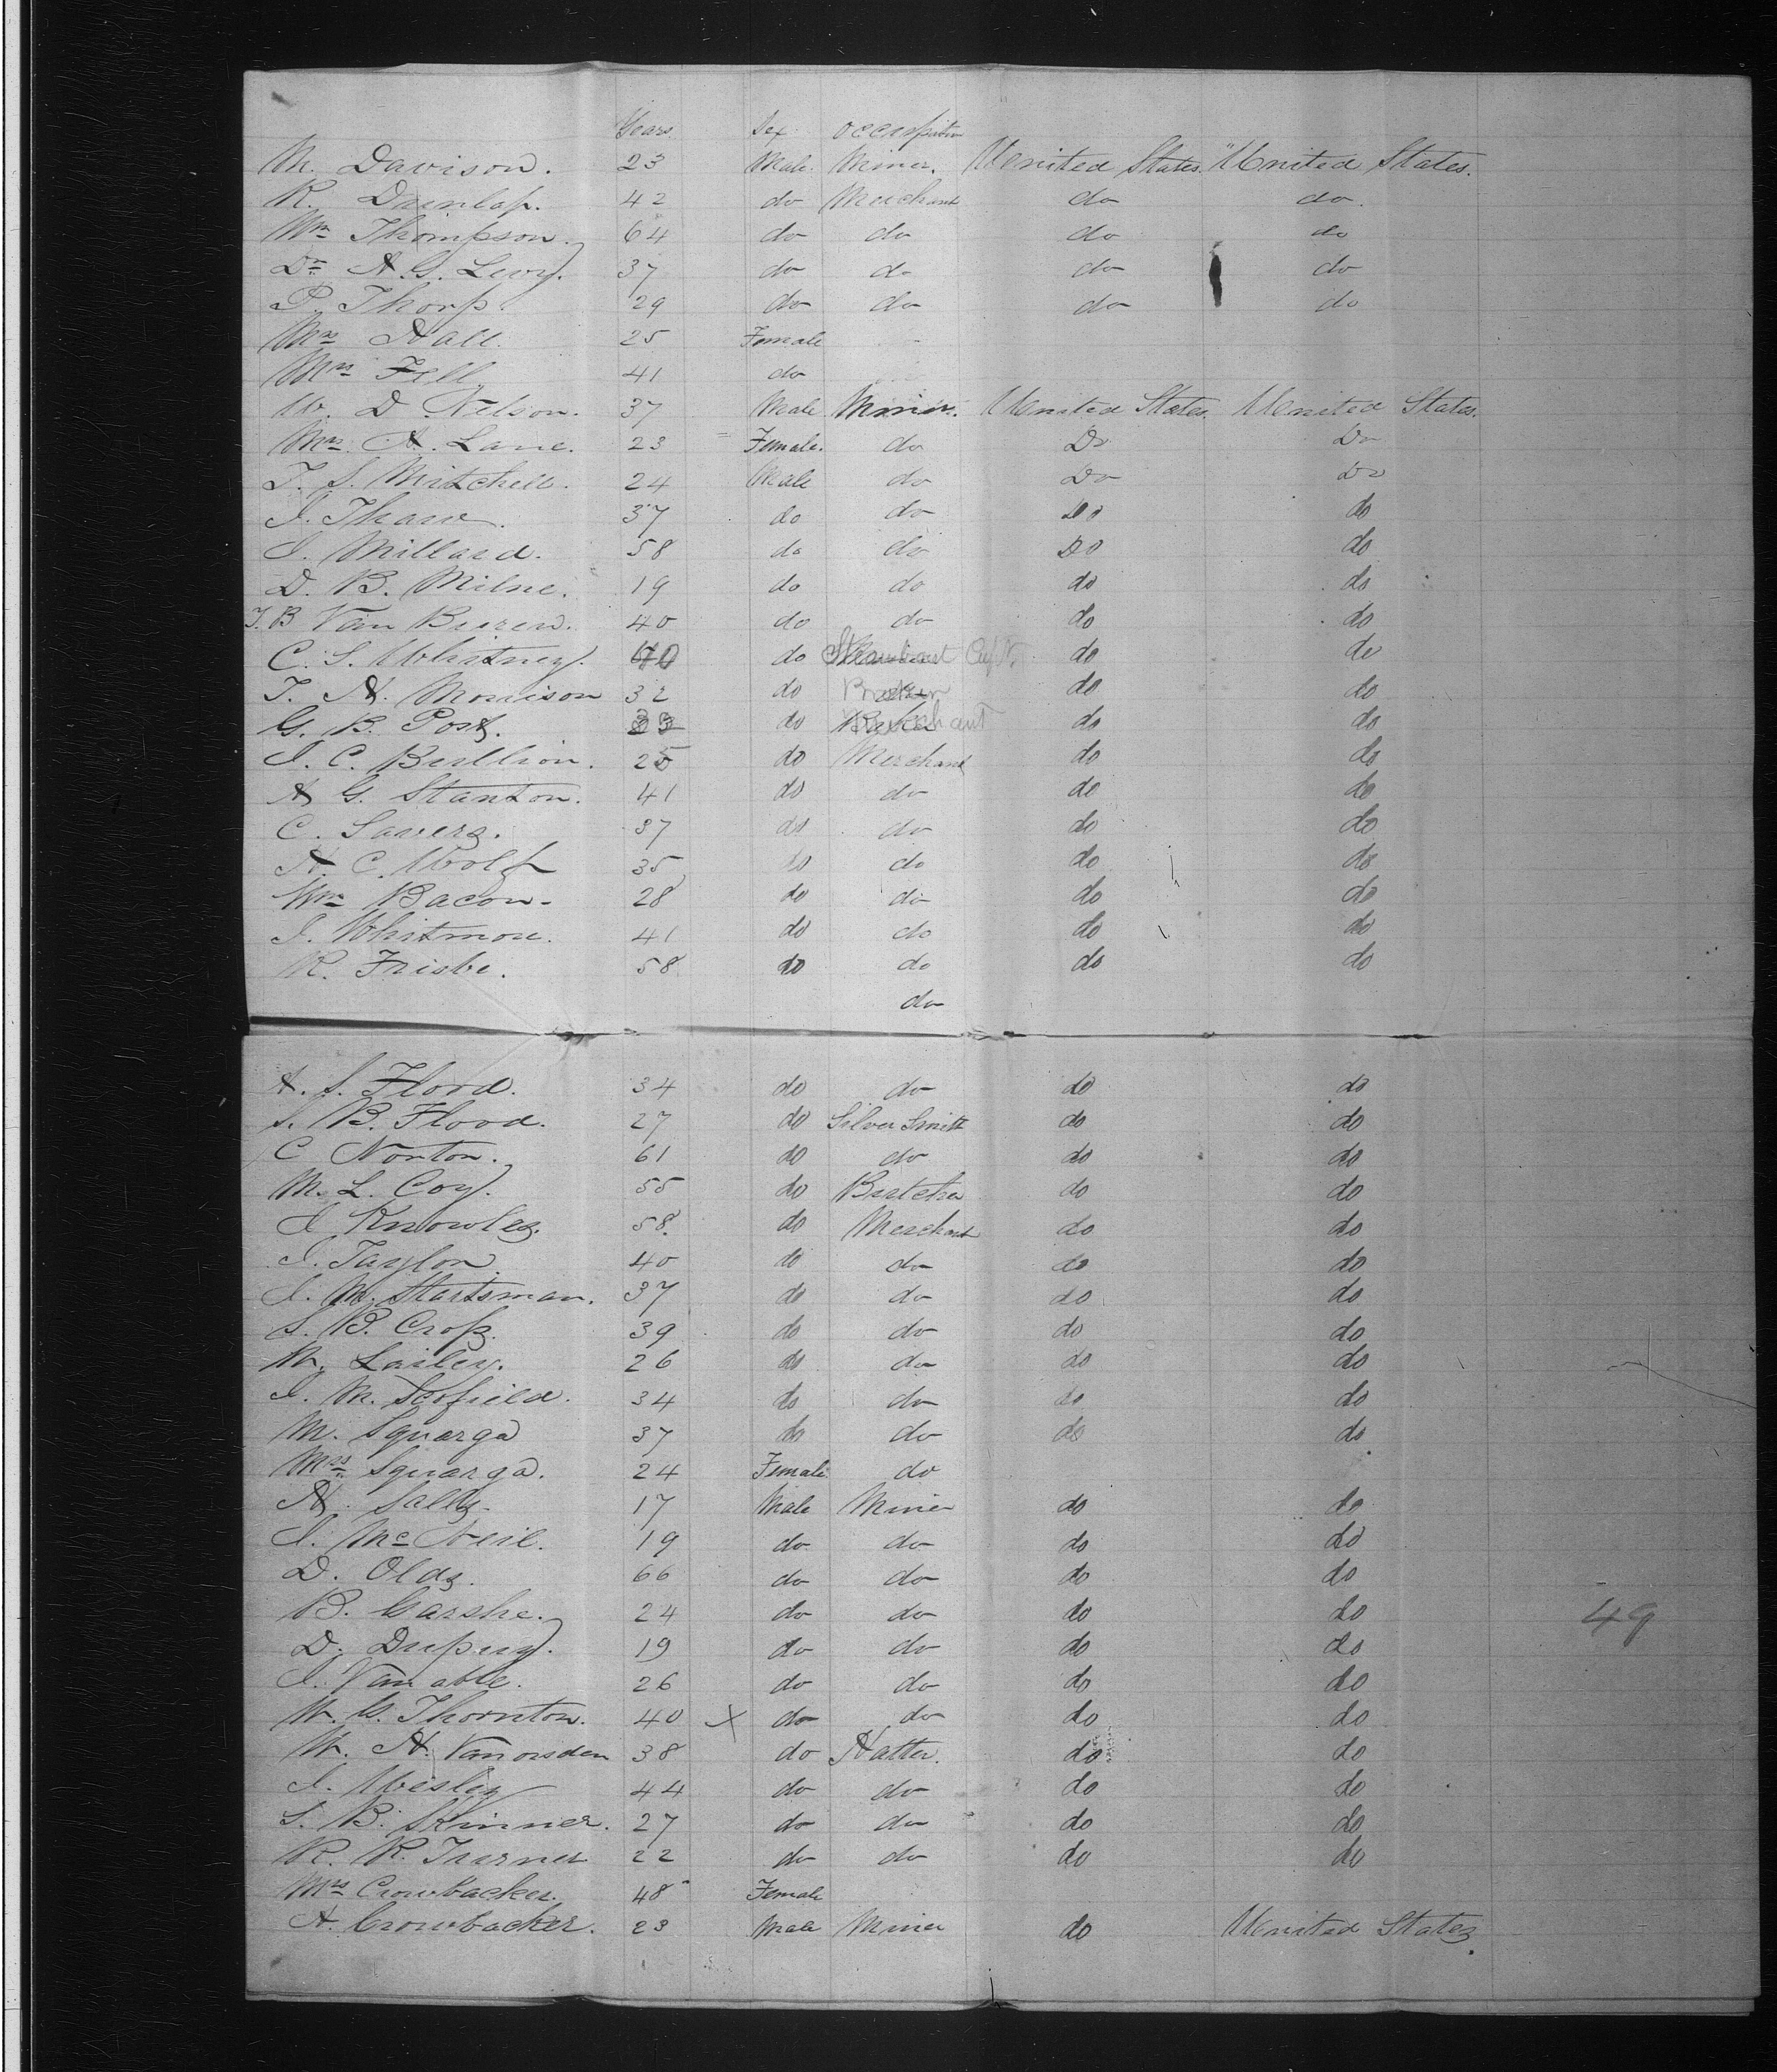 Years Sex occupation
M. Davison. 23 Male Miner. United States. United States.
R. Dunlap. 42 do Merchant do do.
Wm Thompson. 64 do do do do
Dr. H. G. Levy. 37 do do do do
P. Thorp. 29 do do do do
Mrs Hall. 25 Female
Mrs Fell 41 do
W. D. Nelson. 37 Male Miner. United States. United States.
Mrs H. Lane. 23 Female. do Do Do
T. S. Mitchell. 24 Male do Do Do
J. Thaw. 37 do do Do do
J. Millard. 58 do do Do do
D. B. Milne. 19 do do do do
T. B Van Buren. 40 do do do do
C. S. Whitney. do Steamboat Capt. do do
T. H. Morrison 32 do do do
G. B. Post. do Merchant do do
J. C. Bullion. 25 do Merchant do do
H G. Stanton. 41 do do do do
C. Savers. 37 do do do do
H. C. Wolf 35 do do do do
Wm Bacon. 28 do do do do
J. Whitmore. 41 do do do do
R. Frisbe. 58 do do do do
do
H. S. Flood. 34 do do do do
S. B. Flood. 27 do Silver Smith do do
C Norton. 61 do do do do
M. L. Coy. 55 do Butcher do do
J Knowles. 58. do Merchant do do
J. Taylor. 40 do do do do
J. M. Startsman. 37 do do do do
S. B. Cross. 39 do do do do
M. Lailey. 26 do do do do
J. M. Scofield. 34 do do do do
M. Squarga 37 do do do do
Mrs Squarga. 24 Female do
H. Salls. 17 Male Miner do do
J. McNeil. 19 do do do do
D. Olds. 66 do do do do
B. Garshe. 24 do do do do 49
D. Dupuy. 19 do do do do
J. Van able. 26 do do do do
W. G. Thornton. 40 X do do do do
W. H. Vanorsden 38 do Hatter. do do
J. Wesley 44 do do do do
S. B. Skinner. 27 do do do do
R. R. Turner 22 do do do do
Mrs Crowbacker. 48 Female
H. Crowbacker. 23 Male Miner do United States.